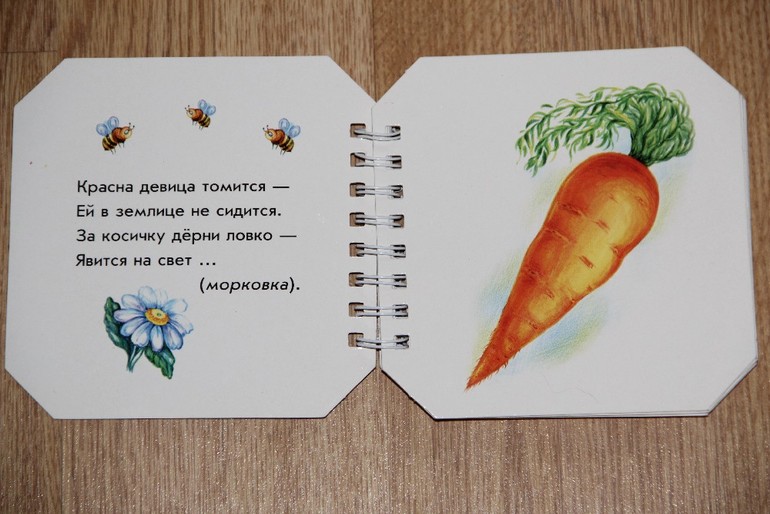 Красна девица томится —
Ей в землице не сидится.
За косичку дёрни ловко —
Явится на свет ...
(морковка).